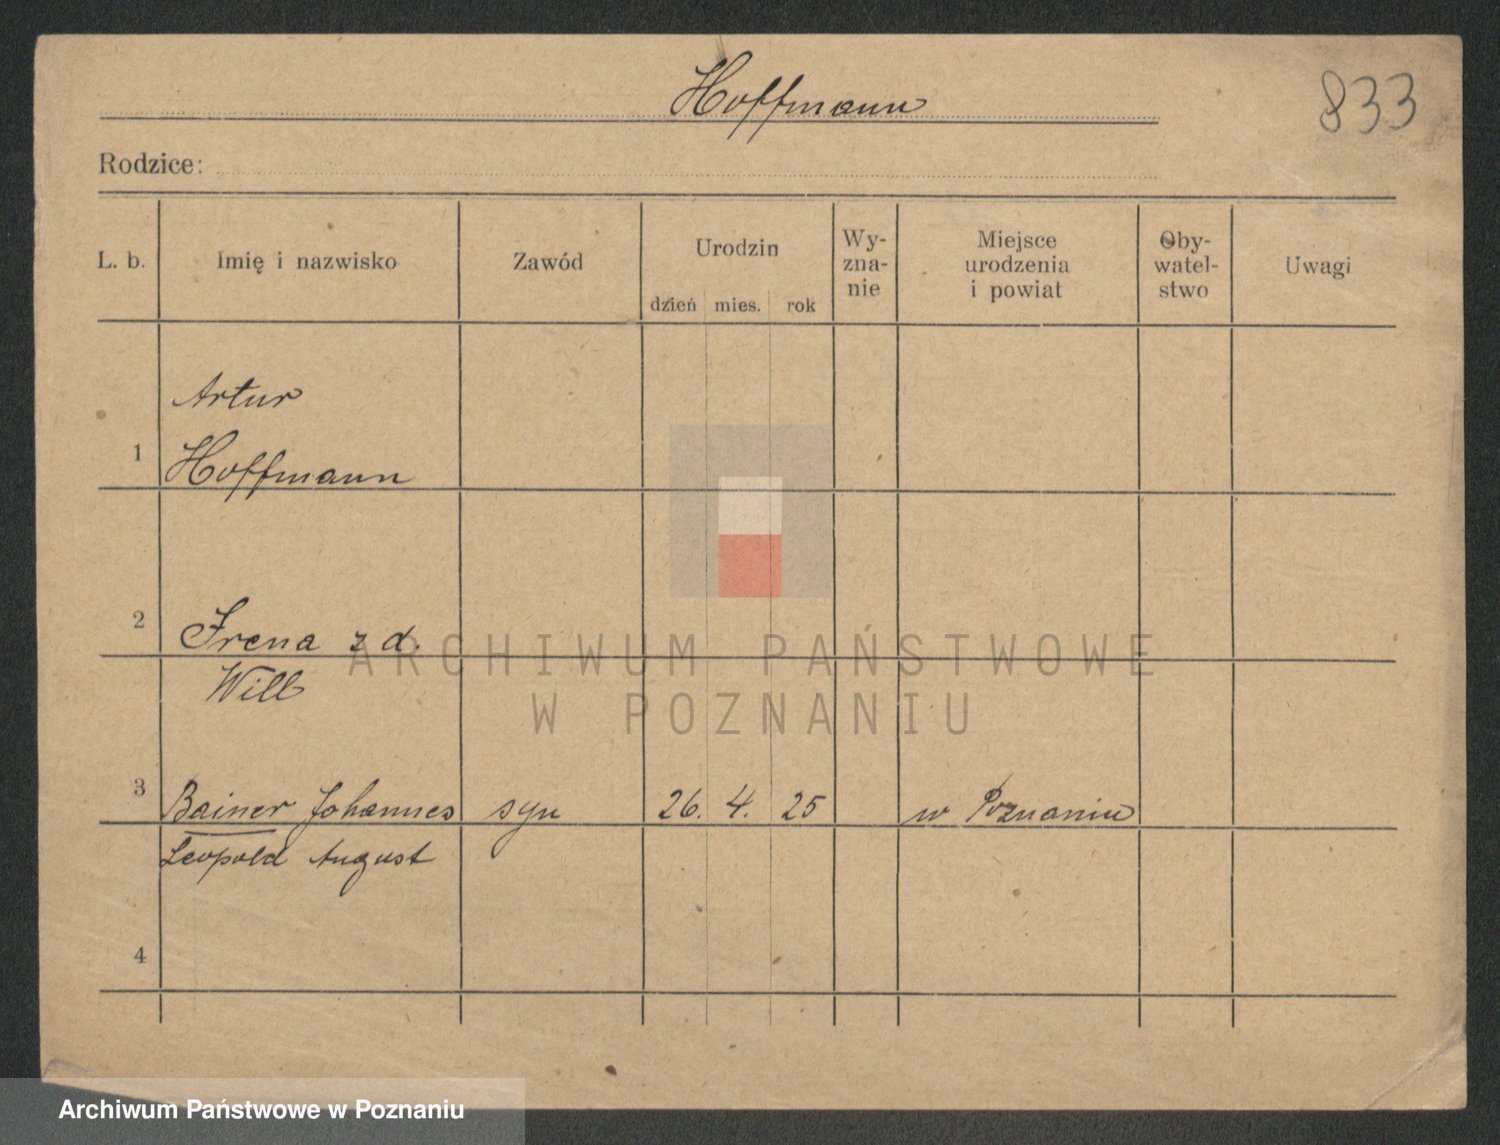 Hoffmann
833
Rodzice:
L. b.
Imię i nazwisko
Zawód
Urodzin
dzień mies. rok
Wy-
zna-
nie
Miejsce
urodzenia
i powiat
Oby-
watel-
stwo
Uwagi
Artur
1 Hoffmann
2 Irena z d.
Will
3 Bainer Johannes syn 26. 4. 25 w Poznaniu
Leopold August
4
ARCHIWUM PAŃSTWOWE
W POZNANIU
Archiwum Państwowe w Poznaniu